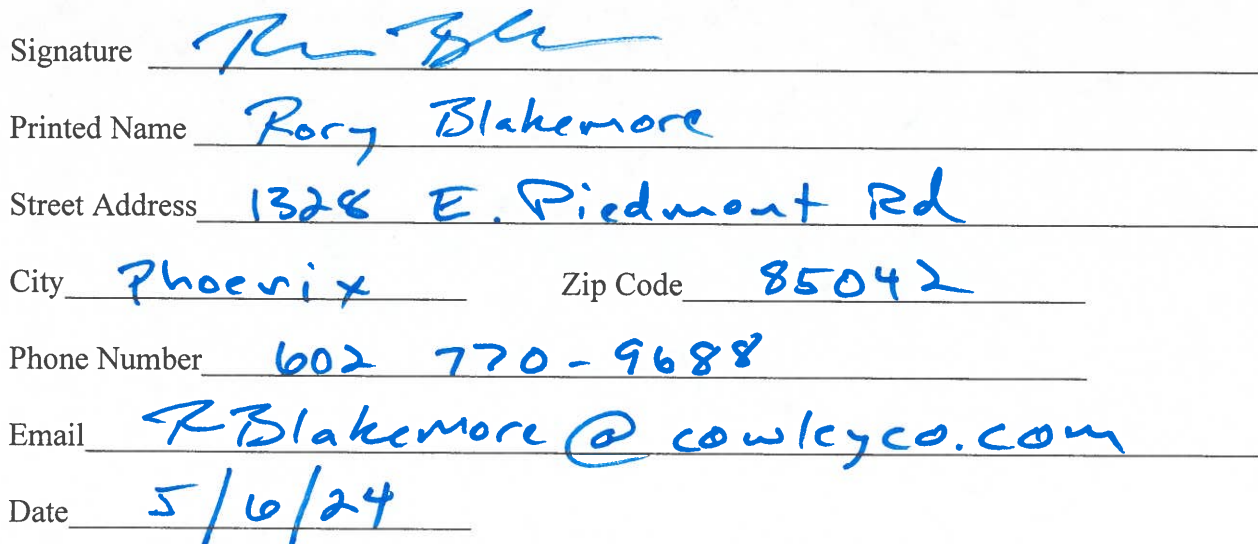 Signature
Printed Name Rory Blakemore
Street Address 1328 E. Piedmont Rd
City Phoenix Zip Code 85042
Phone Number 602 770-9688
Email RBlakemore@cowleyco.com
Date 5/6/24